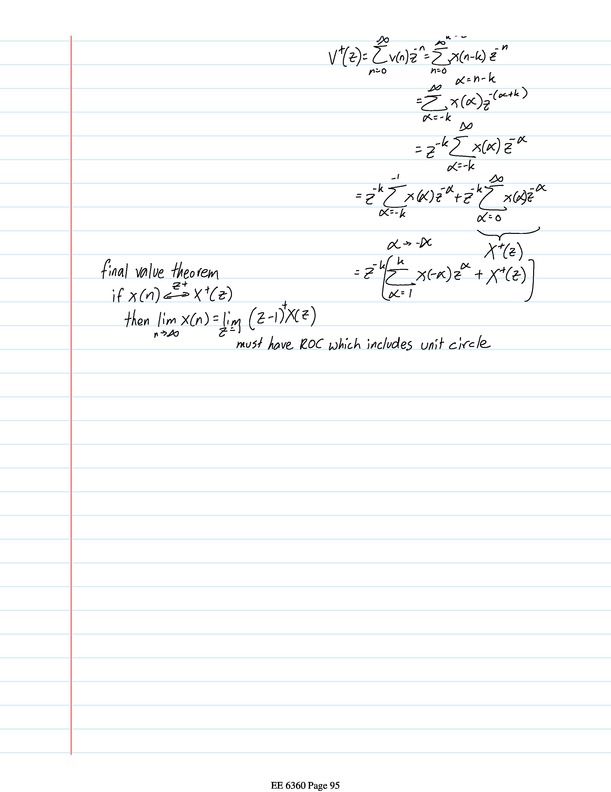 V⁺(z)=∑_{n=0}^{∞} v(n)z^{-n}=∑_{n=0}^{∞} x(n-k) z^{-n}
α=n-k
=∑_{α=-k}^{∞} x(α)z^{-(α+k)}
=z^{-k}∑_{α=-k}^{∞} x(α) z^{-α}
=z^{-k}∑_{α=-k}^{-1} x(α)z^{-α}+z^{-k}∑_{α=0}^{∞} x(α)z^{-α}
α→-α X⁺(z)
=z^{-k}[∑_{α=1}^{k} x(-α)z^{α} + X⁺(z)]
final value theorem
if x(n) ⟷^{z+} X⁺(z)
then lim_{n→∞} x(n)=lim_{z→1} (z-1)⁺X(z)
must have ROC which includes unit circle
EE 6360 Page 95